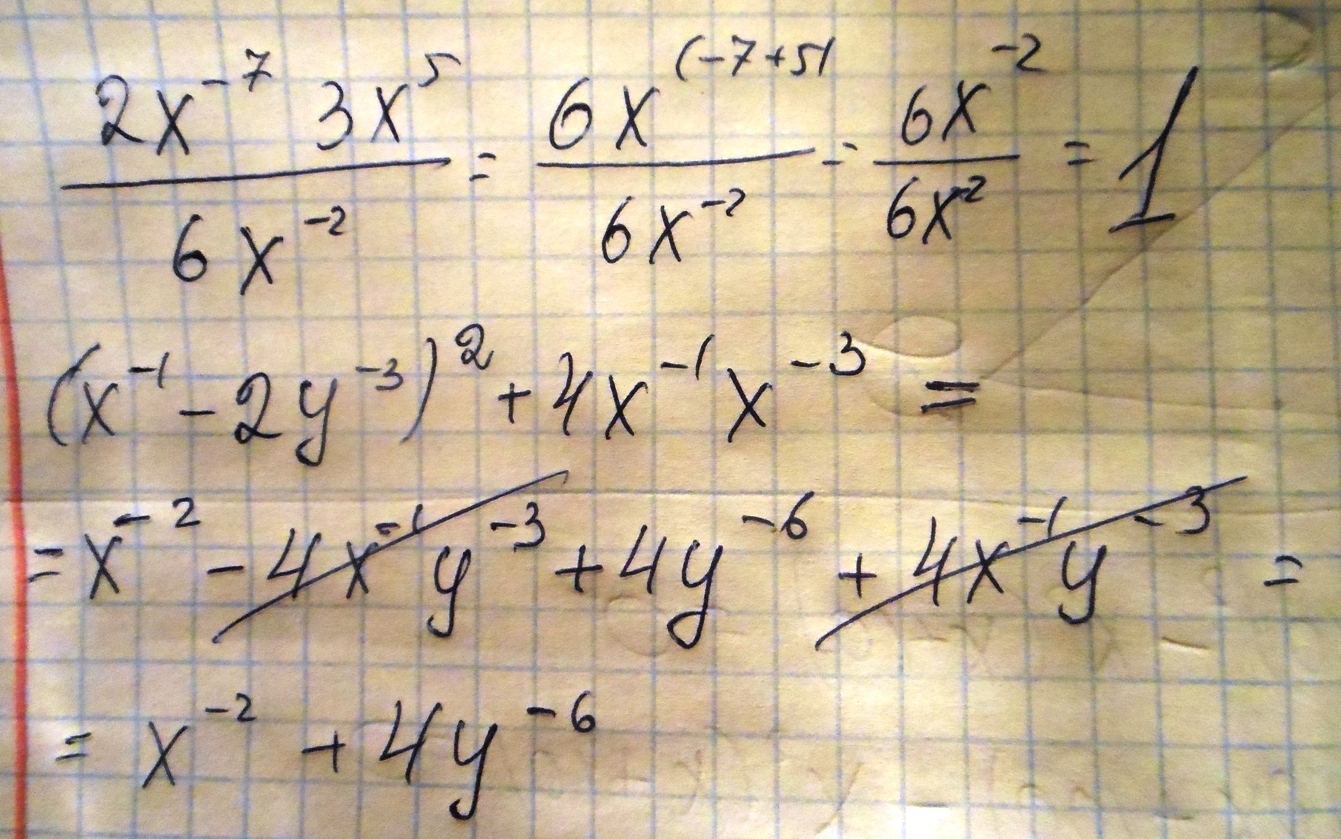 2x⁻⁷ 3x⁵ / 6x⁻² = 6x⁽⁻⁷⁺⁵⁾ / 6x⁻² = 6x⁻² / 6x⁻² = 1
(x⁻¹ - 2y⁻³)² + 4x⁻¹x⁻³ =
= x⁻² - 4x⁻¹y⁻³ + 4y⁻⁶ + 4x⁻¹y⁻³ =
= x⁻² + 4y⁻⁶